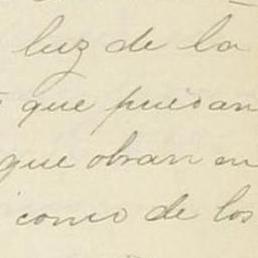 luz de la
que puedan
que obran en
como de los